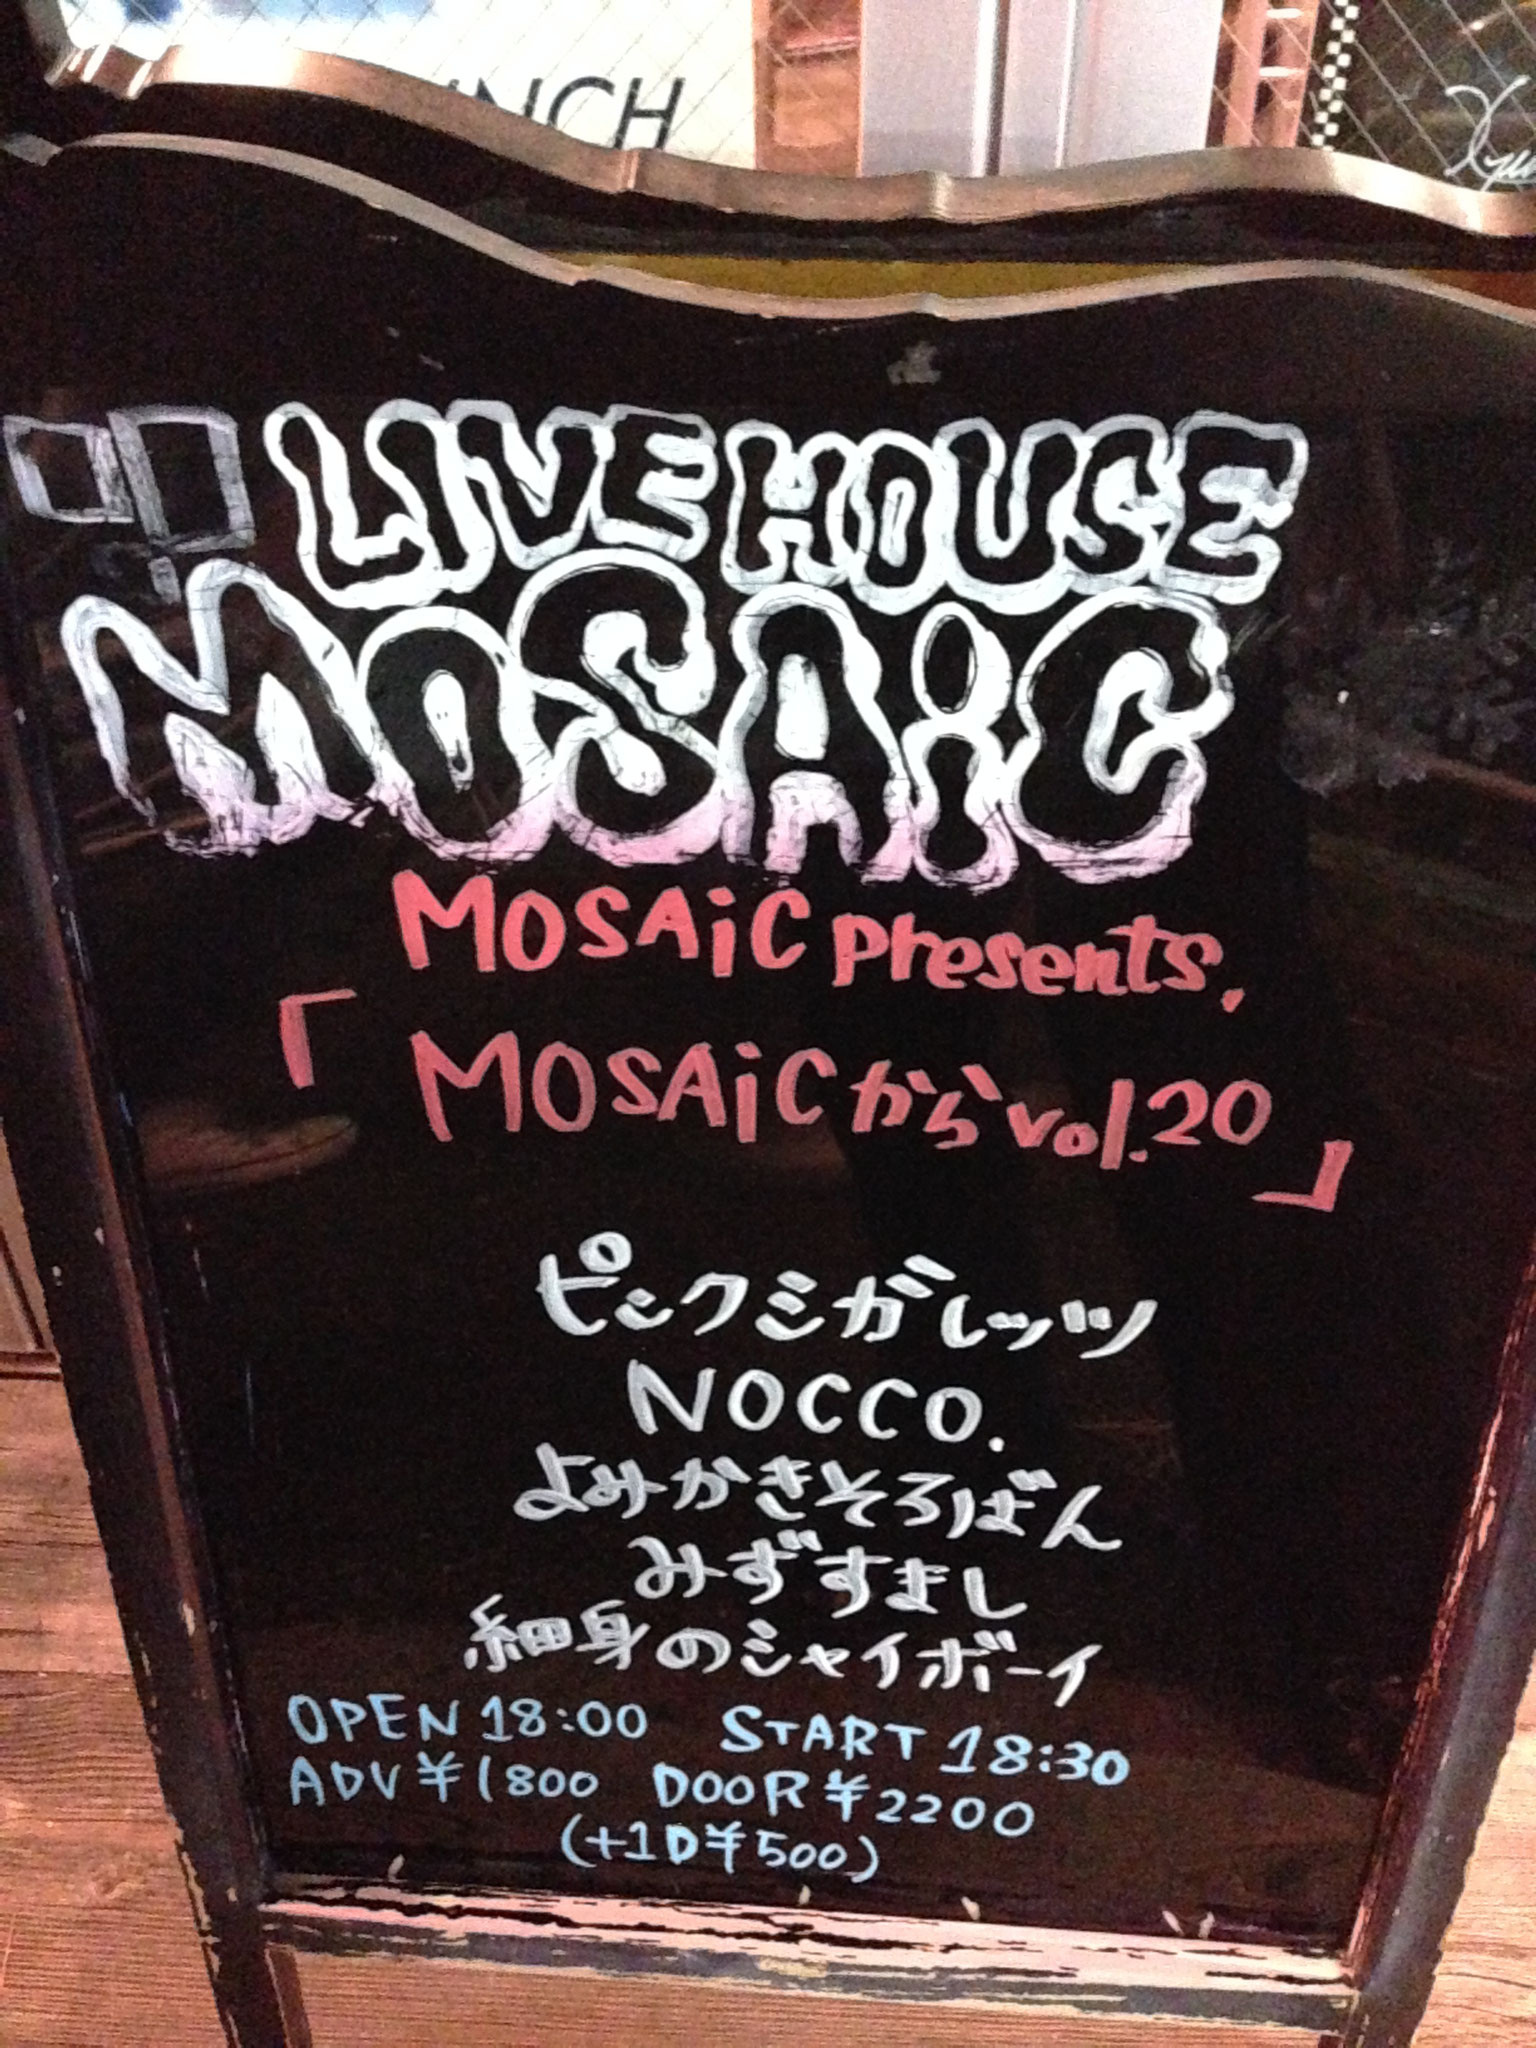 UNCH
LIVE HOUSE
MOSAiC
MOSAiC presents.
「MOSAiCからvol.20」
ピンクシガレッツ
NOCCO.
よみかきそろばん
みずすまし
細身のシャイボーイ
OPEN 18:00 START 18:30
ADV ¥1800 DOOR ¥2200
(+1D¥500)